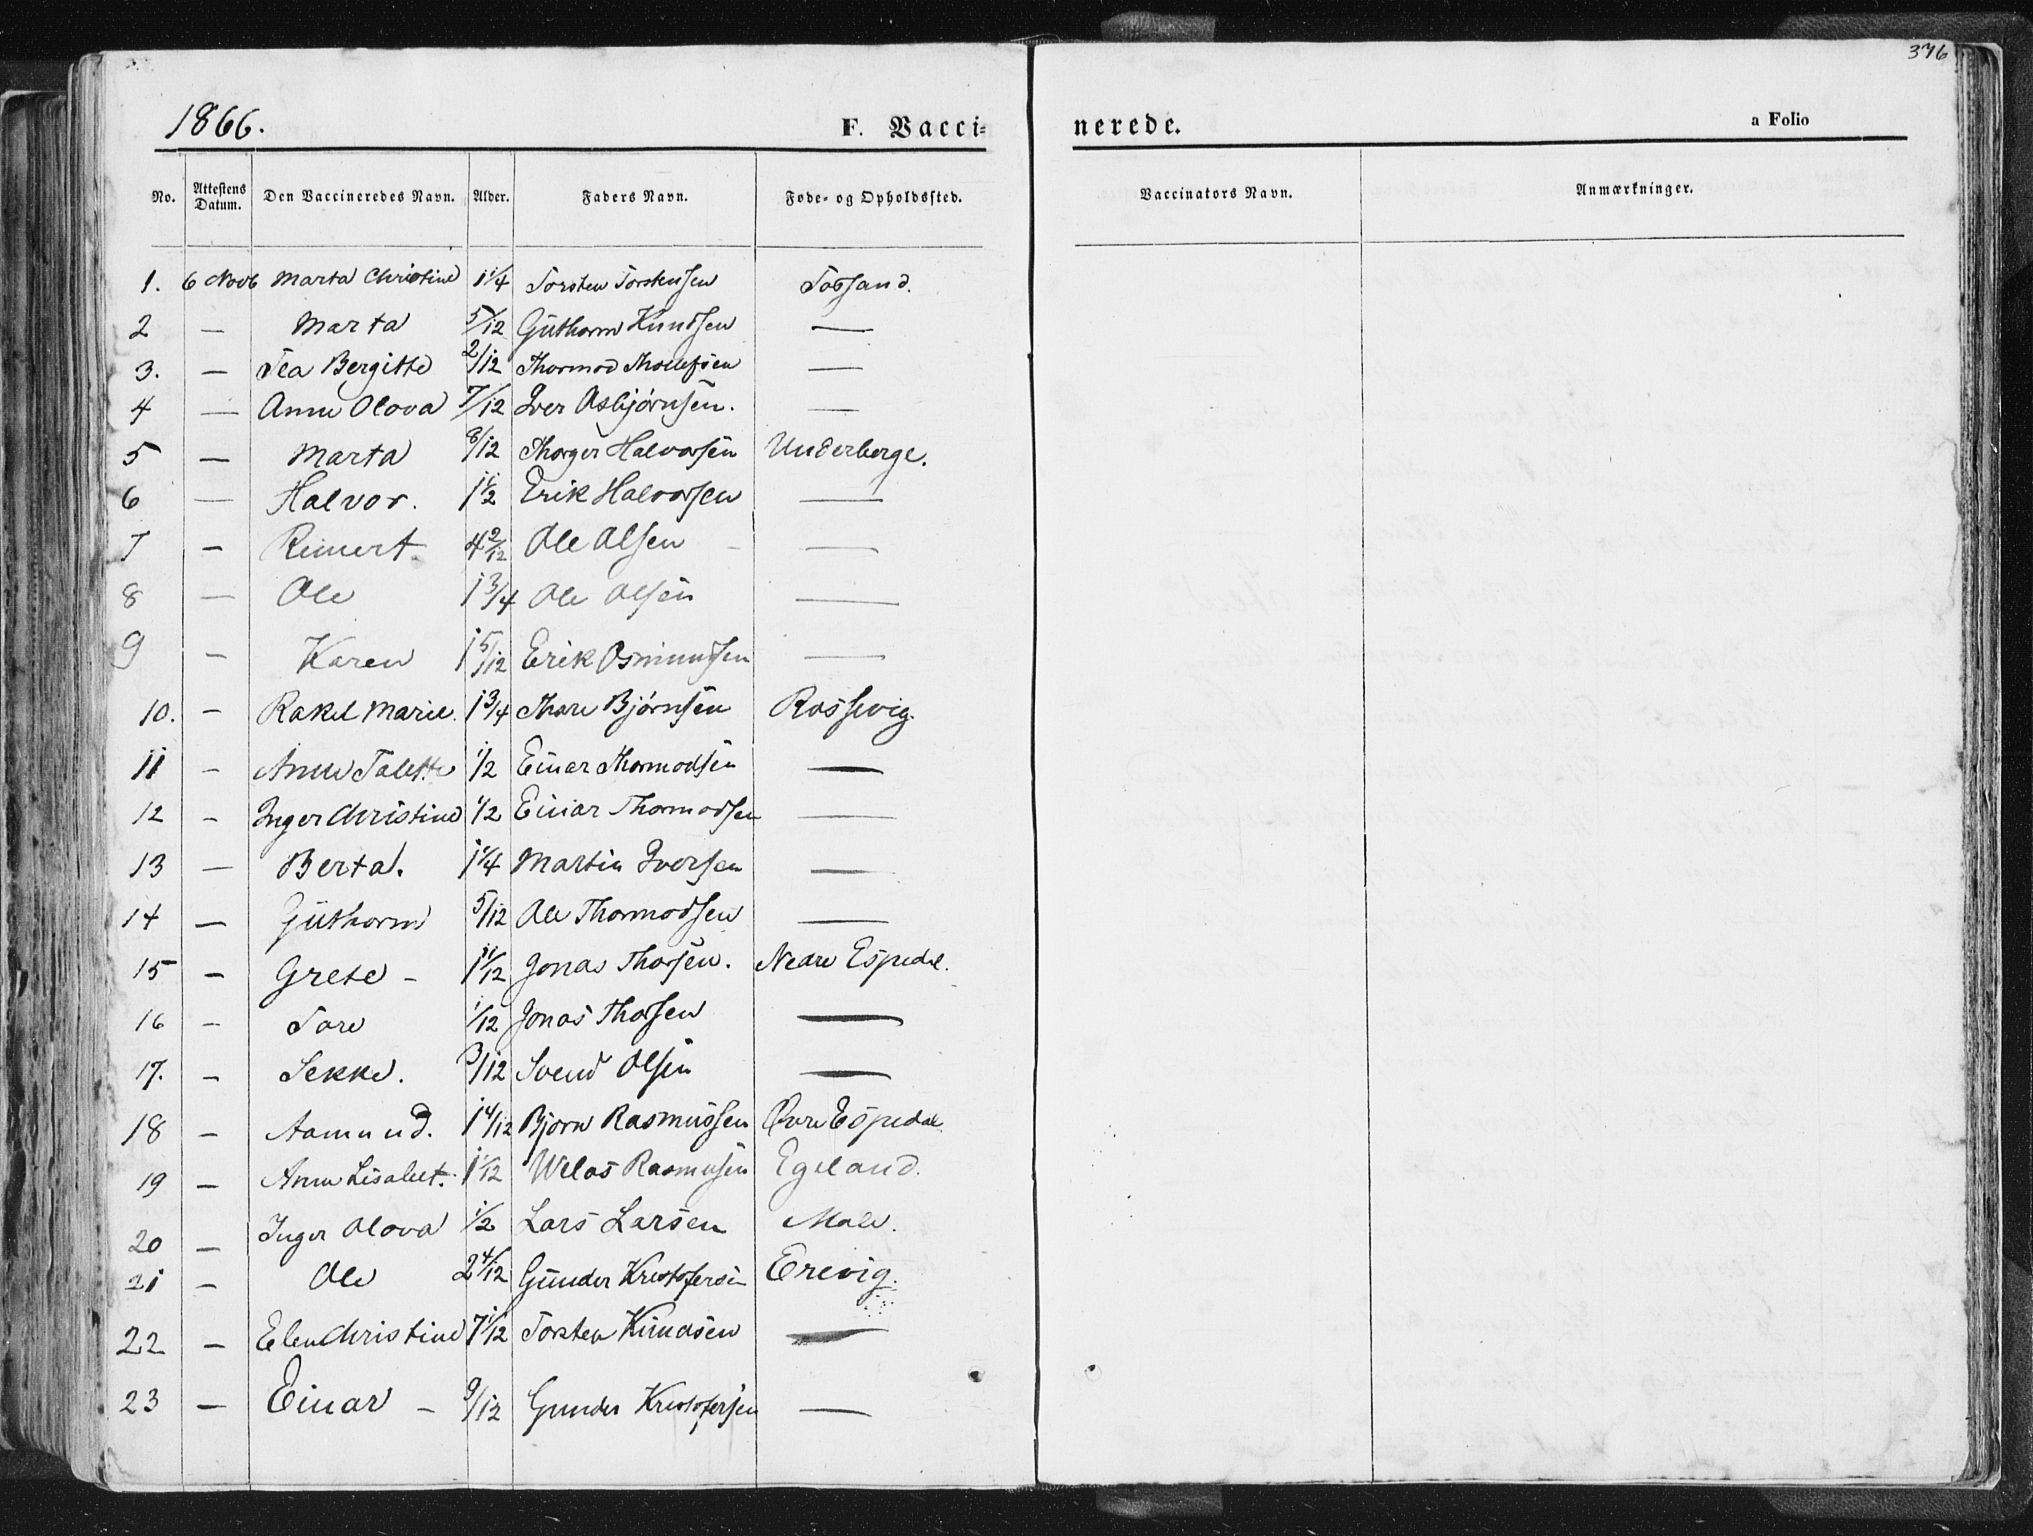 376
1866.
F. Vacci=
nerede.
a Folio
No. Attestens Datum. Den Vaccineredes Navn. Alder. Faders Navn. Føde- og Opholdssted. Vaccinators Navn. Anmærkninger.
1. 6 Novb Marta Christine 1 1/4 Torsten Torstensen Fossand.
2 — Marta 5/12 Guthorm Knudsen —
3. — Tea Bergitte 2/12 Thormod Thollefsen —
4 — Anne Olova 7/12 Iver Asbjørnsen. —
5 — Marta 8/12 Thorger Halvorsen Underberge.
6 — Halvor. 1 1/2 Erik Halvorsen —
7 — Reinert 4 2/12 Ole Olsen —
8 — Ole 1 3/4 Ole Olsen —
9 — Karen 1 5/12 Erik Osmundsen —
10. — Rakel Marie. 1 3/4 Thore Bjørnsen Rossevig.
11 — Anne Talette 1/2 Einar Thormodsen —
12 — Inger Christine 1/2 Einar Thormodsen —
13 — Berta. 1 1/4 Martin Iversen —
14 — Guthorm 5/12 Ole Thormodsen —
15 — Grete — 1 11/12 Jonas Thorsen. Nedre Espedal.
16 — Tore 1/12 Jonas Thorsen —
17. — Sekke. 3/12 Svend Olsen —
18 — Aamund. 1 4/12 Bjørn Rasmussen Øvre Espedal
19 — Anne Lisabet. 1 1/12 Welas Rasmusen Egeland.
20 — Inger Olova 1/2 Lars Larsen Mele.
21 — Ole 2 4/12 Gunder Kristofersen Erevig.
22 — Elen Christine 7 1/12 Torsten Knudsen —
23 — Einar — 9/12 Gunder Kristofersen —